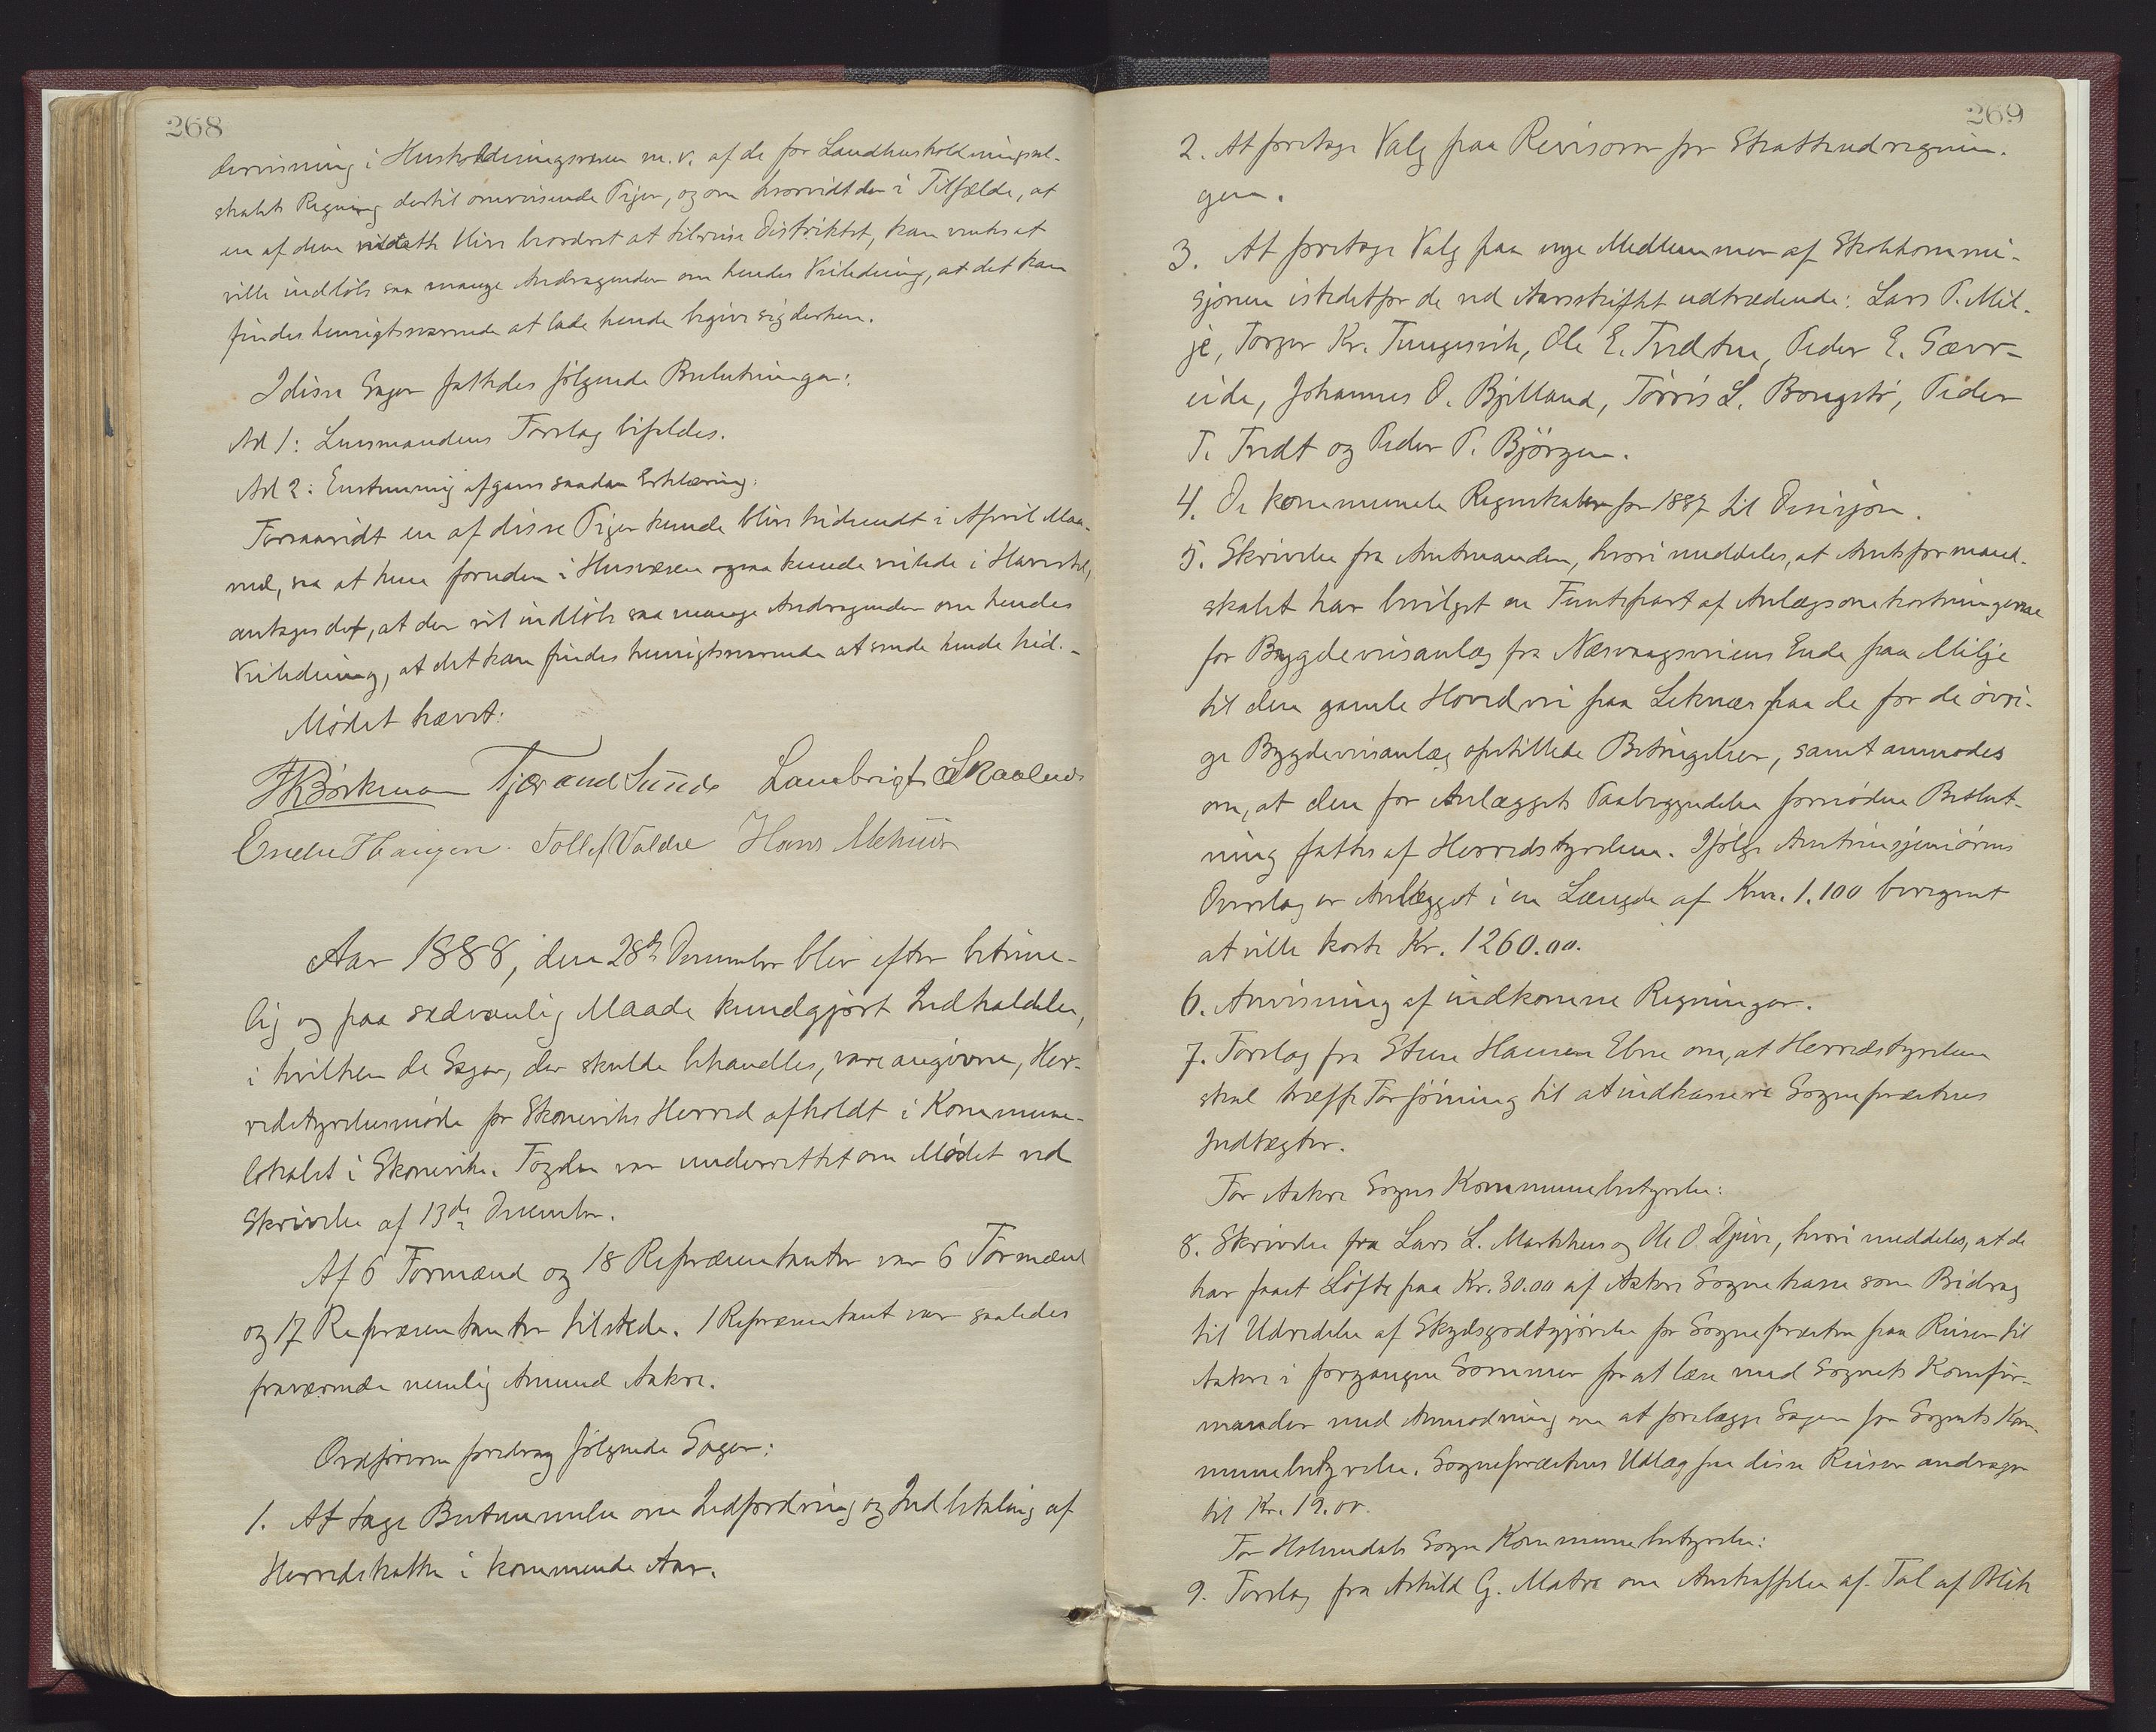 268
dervisning i Husholdningsvæsen m.v. af de for Landhusholdningssel-
skabets Regning dertil omreisende Piger, og om hvorvidt der i Tilfælde, at
en af dem maatte blive beordret at tilreise Distriktet, kan ventes at
ville indløbe saa mange Andragender om hendes Veiledning, at det kan
findes hensigtsvarende at lade hende begive sig derhen.
I disse Sager fattedes følgende Beslutninger:
Ad 1: Lensmandens Forslag bifaldes.
Ad 2: Enstemmig afgaves saadan Erklæring:
Forsaavidt en af disse Piger kunde blive hidsendt i April Maa-
ned, saa at hun foruden i Husvæsen ogsaa kunde veilede i Havestel,
antages det, at der vil indløbe saa mange Andragender om hendes
Veiledning, at det kan findes hensigtsvarende at sende hende hid.-
Mødet hævet:
Børkman Tjerand Sunde Lambrigt Skaalnes
Endre Haugen. Tollef Valdre Hans Mehuus
Aar 1888, den 28de December blev efter betime-
lig og paa sædvanlig Maade kundgjort Indkaldelse,
i hvilken de Sager, der skulde behandles, vare angivne, Her-
redsstyrelsesmøde for Skoneviks Herred afholdt i Kommune-
lokalet i Skonevik. Fogden var underrettet om Mødet ved
Skrivelse af 13de December.
Af 6 Formænd og 18 Repræsentanter var 6 Formænd
og 17 Repræsentanter tilstede. 1 Repræsentant var saaledes
fraværende nemlig Amund Aakre.
Ordføreren foredrog følgende Sager:
1. At tage Bestemmelse om Indfordring og Indbetaling af
Herredsskatten i kommende Aar.
269
2. At foretage Valg paa Revisorer for Skatteudregnin-
gen.
3. At foretage Valg paa nye Medlemmer af Skolekommi-
sjonen istedetfor de ved Aarsskiftet udtrædende: Lars P. Mil-
je, Torger Kr. Tungesvik, Ole E. Tvedtne, Peder E. Sævr-
eide, Johannes O. Bjelland, Tørris L. Brongstø, Peder
T. Tvedt og Peder P. Bjørgen.
4. De kommunale Regnskaber for 1887 til Desisjon.
5. Skrivelse fra Amtmanden, hvori meddeles, at Amtsformand-
skabet har bevilget en Femtepart af Anlægsomkostningerne
for Bygdeveisanlæg fra Næsvaagsveiens Ende paa Milje
til den gamle Hovedvei paa Leknæs paa de for de øvri-
ge Bygdeveisanlæg opstillede Betingelser, samt anmodes
om, at den for Anlæggets Paabegyndelse fornødne Beslut-
ning fattes af Herredsstyrelsen. Ifølge Amtsinsjeniørens
Overslag er Anlægget i en Længde af Km. 1.100 beregnet
at ville koste Kr. 1260.00.
6. Anvisning af indkomne Regninger.
7. Forslag fra Sten Hansen Ebne om, at Herredsstyrelsen
skal træffe Forføining til at indkassere Sognepræstens
Indtægter.
For Aakre Sogns Kommunebestyrelse:
8. Skrivelse fra Lars L. Markhus og Ole O. Djuve, hvori meddeles, at de
har faaet Løfte paa Kr. 30.00 af Aakre Sognekasse som Bidrag
til Udredelse af Skydsgodtgjørelse for Sognepræsten paa Reiser til
Aakre i forgangne Sommer for at læse med Sognets Konfir-
mander med Anmodning om at forelægge Sagen for Sognets Kom-
munebestyrelse. Sognepræstens Udlæg paa disse Reiser andrager
til Kr. 19.00.
For Holmedals Sogns Kommunebestyrelse:
9. Forslag fra Askild G. Matre om Anskaffelse af Tal af Blik